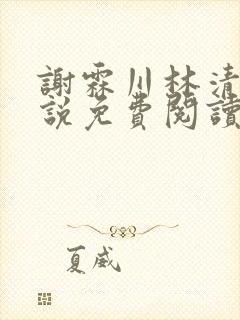 謝霖川林清
說免費閱讀
夏威